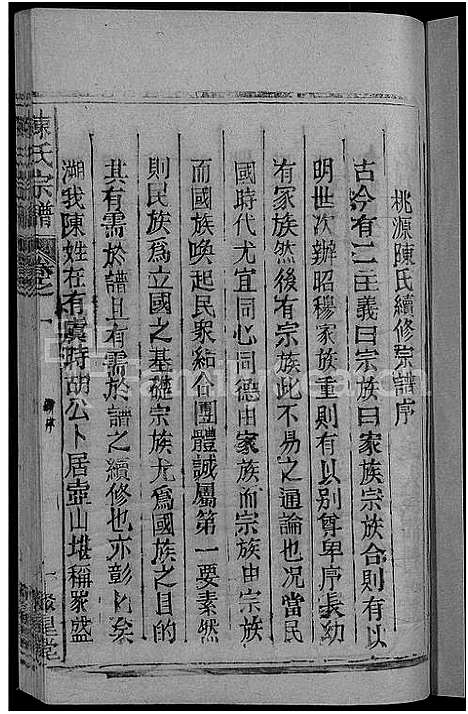 桃源陳氏續修宗譜序
古今有二主義曰宗族曰家族宗族合則有以
明世次辦昭穆家族重則有以别尊卑序長幼
有家族然後有宗族此不易之通論也况當民
國時代尤宜同心同德由家族而宗族由宗族
而國族喚起民眾結合團體誠屬第一要素然
則民族為立國之基礎宗族尤為國族之目的
其有需於譜且有需於譜之續修也亦彰彰矣
溯我陳姓在有虞時胡公卜居壺山堪稱衆盛
陳氏宗譜
卷之一
新序
一
聚星堂